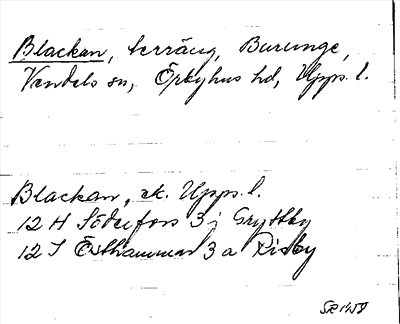 Blackan, terräng, Burunge,
Vendels sn, Örbyhus hd, Upps. l.
Blackan, ek. Upps. l.
12 H Söderfors 3 j Gryttby
12 I Östhammar 3 a Risby